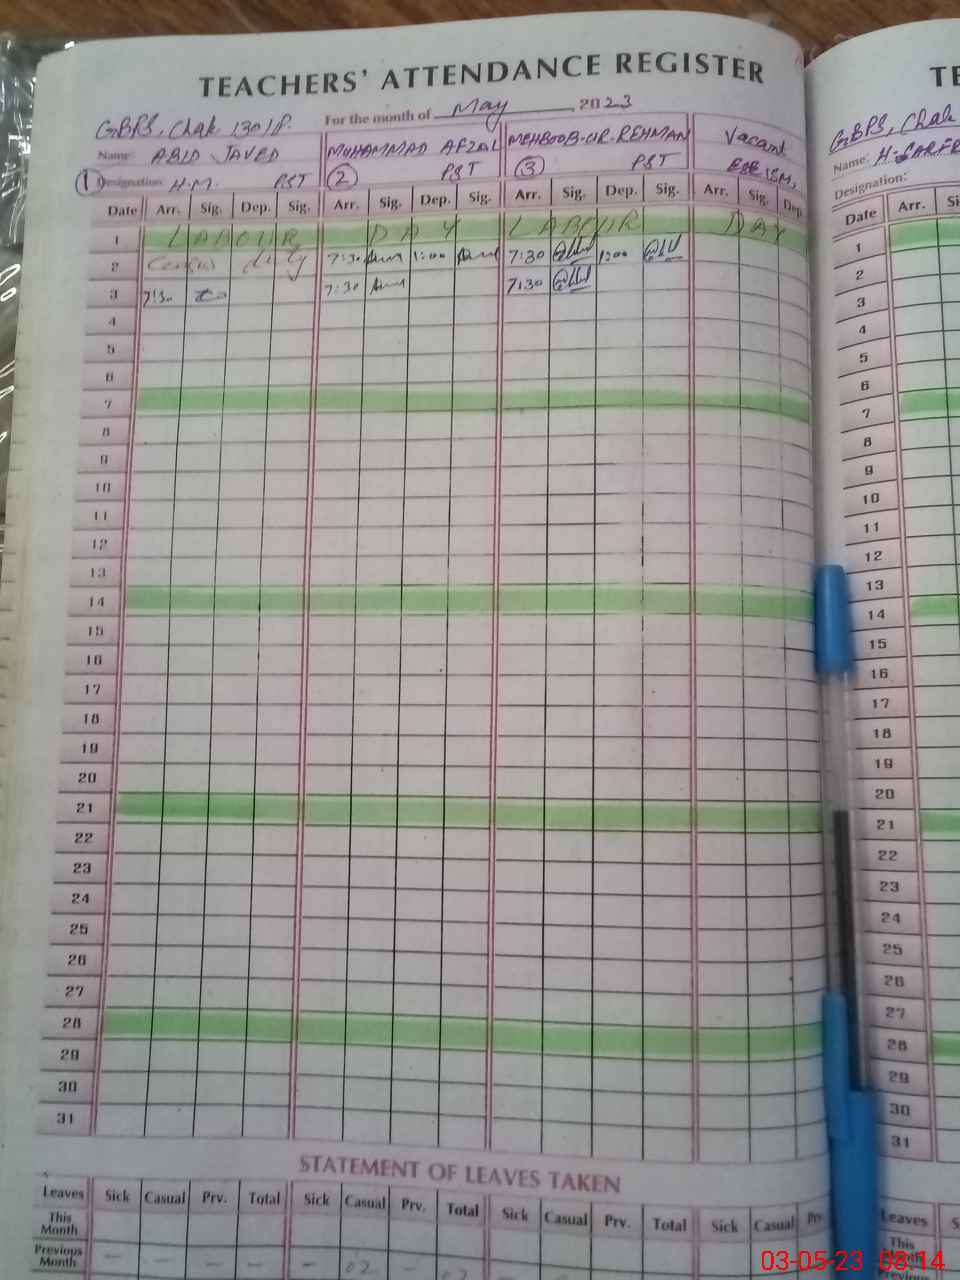 TEACHERS' ATTENDANCE REGISTER
GBPS, Chak 130/P.
For the month of May 2023
Name: ABID JAVED MUHAMMAD AFZAL MEHBOOB-UR-REHMAN Vacant
1 Designation: H.M. PST 2 PST 3 PST ESE (SM)
Date Arr. Sig. Dep. Sig. Arr. Sig. Dep. Sig. Arr. Sig. Dep. Sig. Arr. Sig. Dep
1 LABOUR DAY LABOUR DAY
2 Census duty 7:30 1:00 7:30 1:00
3 7:30 7:30 7:30
4
5
6
7
8
9
10
11
12
13
14
15
16
17
18
19
20
21
22
23
24
25
26
27
28
29
30
31
STATEMENT OF LEAVES TAKEN
Leaves Sick Casual Prv. Total Sick Casual Prv. Total Sick Casual Prv. Total Sick Casual Prv
This Month
Previous Month - - - - - 02 - 02
TE
GBPS, Chak
Name: H-SARFR
Designation:
Date Arr. Si
1
2
3
4
5
6
7
8
9
10
11
12
13
14
15
16
17
18
19
20
21
22
23
24
25
26
27
28
29
30
31
Leaves S
This Month
Previous Month
03-05-23 08:14